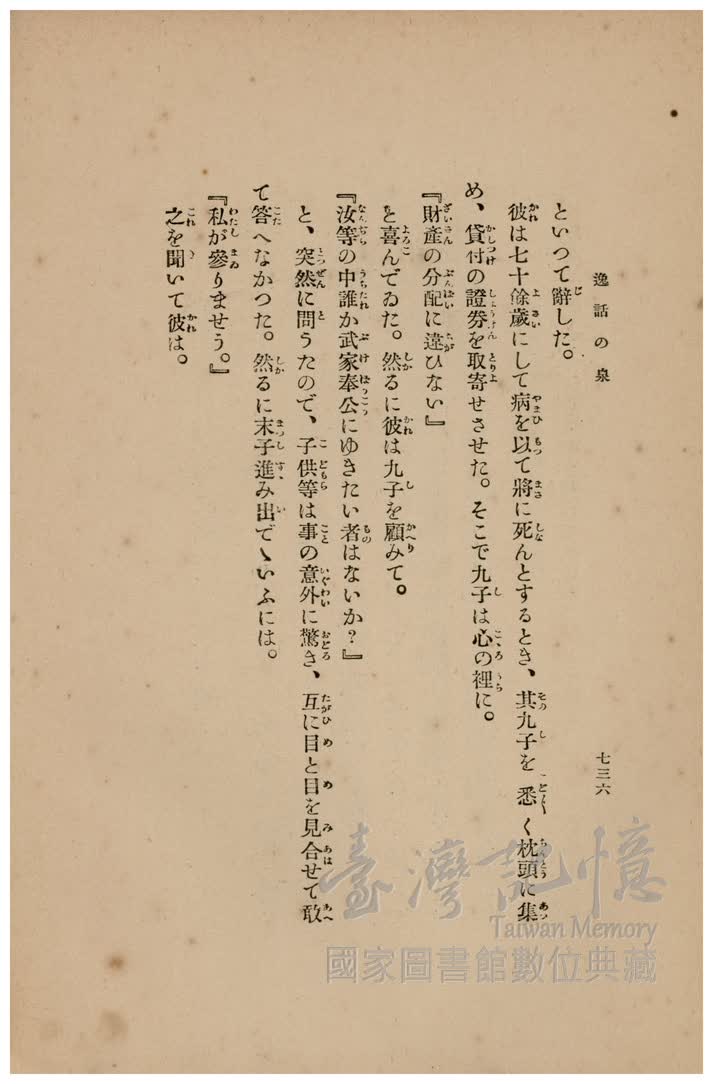 逸話の泉
七三六
といつて辭した。
彼は七十餘歲にして病を以て將に死んとするとき、其九子を悉く枕頭に集
め、貸付の證券を取寄せさせた。そこで九子は心の裡に。
『財產の分配に違ひない』
と喜んでゐた。然るに彼は九子を顧みて。
『汝等の中誰か武家奉公にゆきたい者はないか?』
と、突然に問うたので、子供等は事の意外に驚き、互に目と目を見合せて敢
て答へなかつた。然るに末子進み出でゝいふには。
『私が參りませう。』
之を聞いて彼は。
臺灣記憶
Taiwan Memory
國家圖書館數位典藏